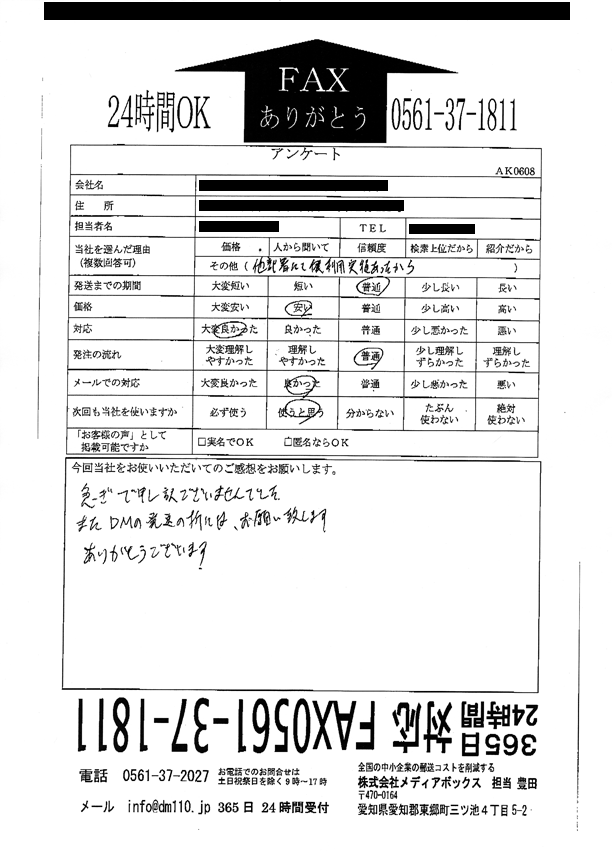 FAX
ありがとう
24時間OK
0561-37-1811
アンケート
AK0608
会社名
住　所
担当者名 TEL
当社を選んだ理由
(複数回答可)
価格 人から聞いて 信頼度 検索上位だから 紹介だから
その他 ( 他部署にて御利用実施あったから )
発送までの期間 大変短い 短い 普通 少し長い 長い
価格 大変安い 安い 普通 少し高い 高い
対応 大変良かった 良かった 普通 少し悪かった 悪い
発注の流れ 大変理解しやすかった 理解しやすかった 普通 少し理解しずらかった 理解しずらかった
メールでの対応 大変良かった 良かった 普通 少し悪かった 悪い
次回も当社を使いますか 必ず使う 使うと思う 分からない たぶん使わない 絶対使わない
「お客様の声」として
掲載可能ですか
□実名でOK □匿名ならOK
今回当社をお使いいただいてのご感想をお願いします。
急ぎで申し訳ございませんでした
またDMの発送の折には、お願い致します
ありがとうございます
365日
24時間
対応 FAX0561-37-1811
電話 0561-37-2027
お電話でのお問合せは
土日祝祭日を除く9時～17時
メール info@dm110.jp 365日24時間受付
全国の中小企業の郵送コストを削減する
株式会社メディアボックス 担当 豊田
〒470-0164
愛知県愛知郡東郷町三ツ池4丁目5-2